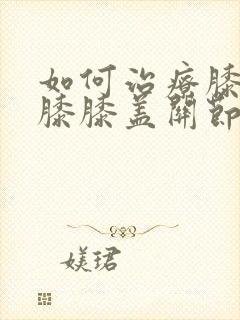 如何治疗膝
膝膝盖關節
媄珺